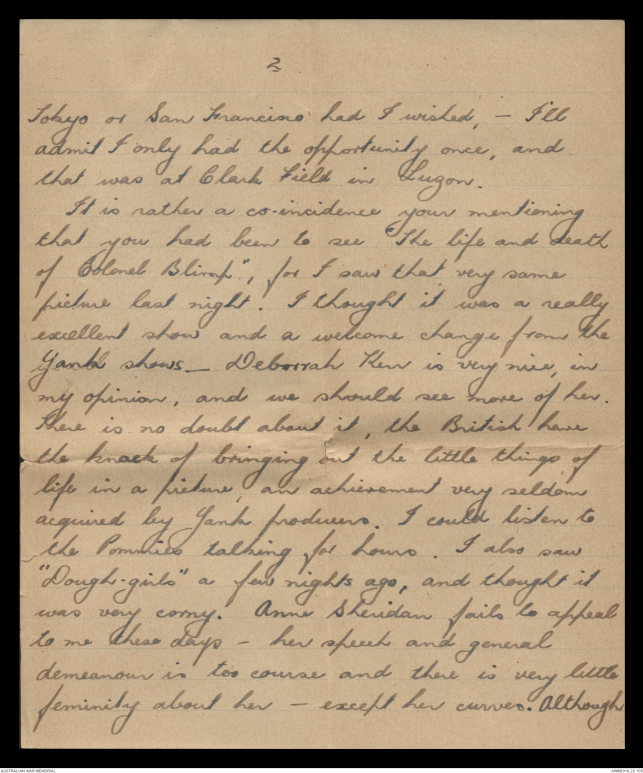 2
Tokyo or San Francisco had I wished, – I'll
admit I only had the opportunity once, and
that was at Clark Field in Luzon.
It is rather a co-incidence your mentioning
that you had been to see "The life and death
of Colonel Blimp", for I saw that very same
picture last night. I thought it was a really
excellent show and a welcome change from the
Yank shows – Deborrah Kerr is very nice, in
my opinion, and we should see more of her.
There is no doubt about it, the British have
the knack of bringing out the little things of
life in a picture, an achievement very seldom
acquired by Yank producers. I could listen to
the Pommies talking for hours. I also saw
"Dough-girls" a few nights ago, and thought it
was very corny. Anne Sheridan fails to appeal
to me these days – her speech and general
demeanour is too course and there is very little
feminity about her – except her curves. Although
AUSTRALIAN WAR MEMORIAL